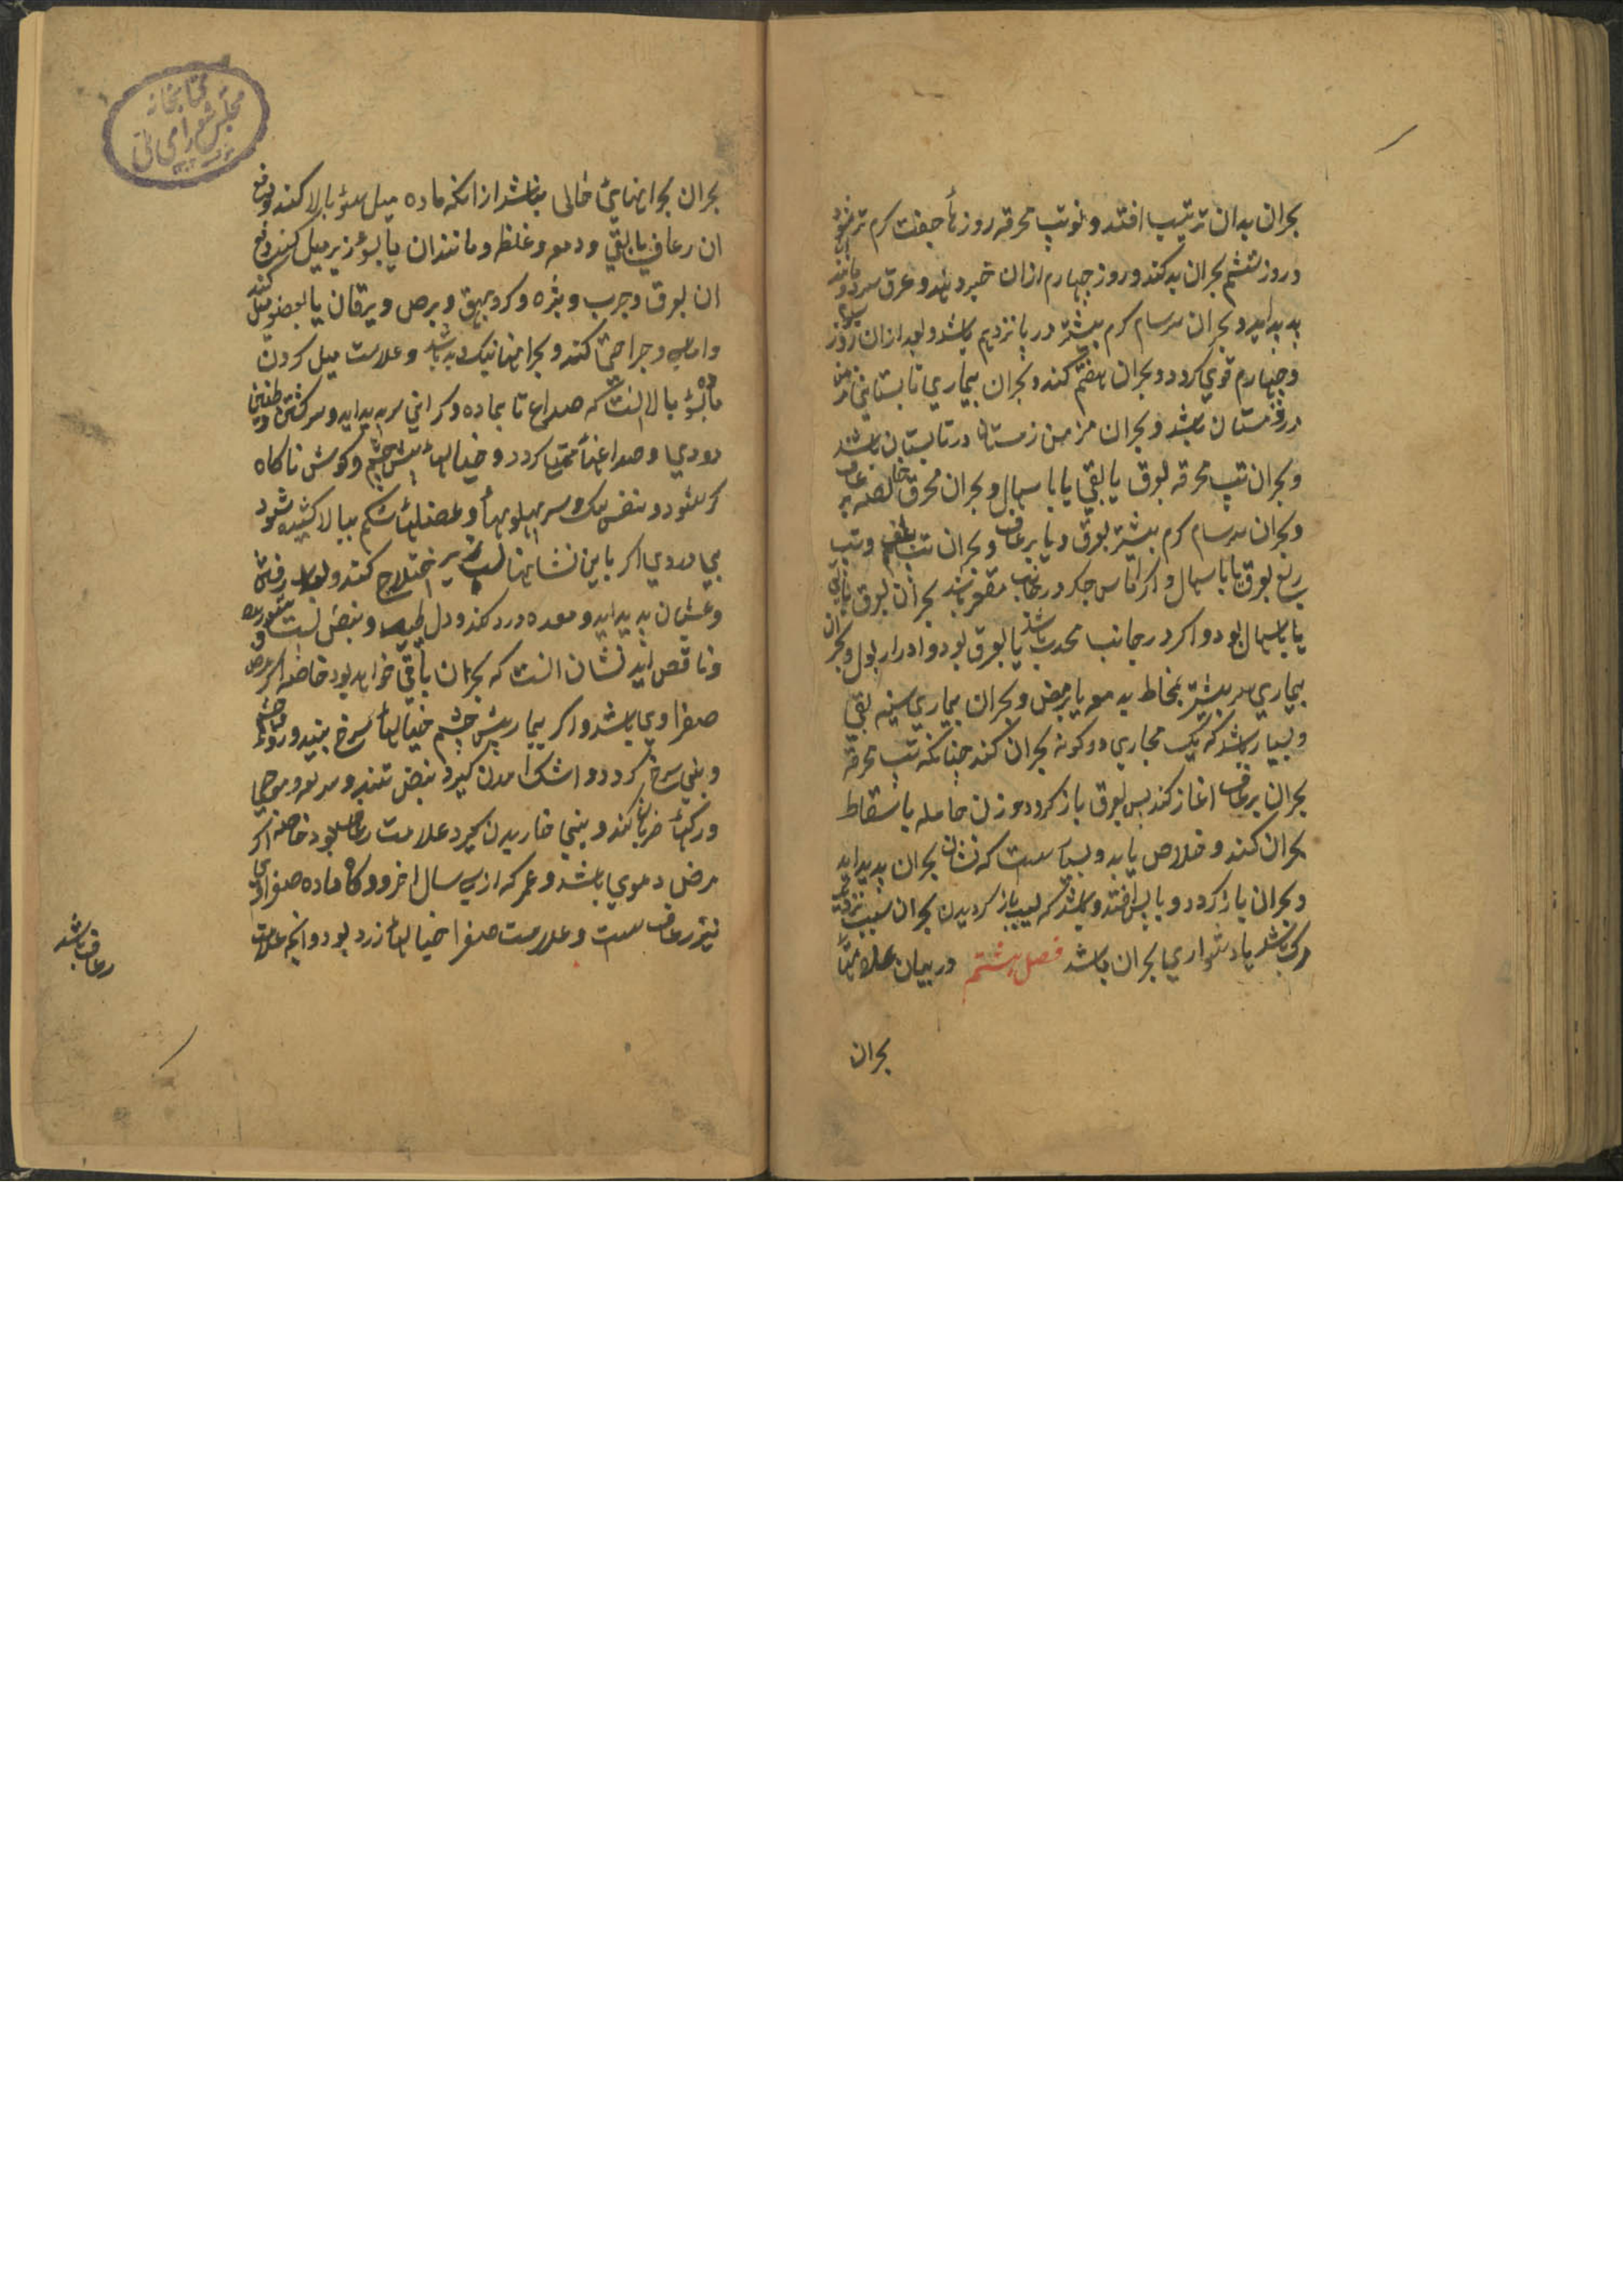 بحران بدان ترتیب افتد و نوبتب محرقه روزها جفت کرم تر شود
و روز ششم بحران بد کند و روز چهارم ازان خبر دهد و عرق سرد و مانند
پدید اید و بحران سرسام کرم بیشتر در یازدهم باشد و بعد ازان روز
و چهارم قوی کردد و بحران هفتم کند و بحران بیماری تابستانی مزمن
در زمستان باشد و بحران مزمن زمستان در تابستان باشد
و بحران تب محرقه بعرق یا بقی یا باسهال و بحران محرق خالصه
و بحران سرسام کرم بیشتر بعرق و یا برعاف و بحران تب بلغمی و تب
ربع بعرق یا باسهال و اکر اماس جکر در جانب مقعر باشد بحران بعرق یا بقی
یا باسهال بود و اکر در جانب محدب باشد یا بعرق بود و ادرار بول و بحران
بیماری سر بیشتر بمخاط به مو یا برمص و بحران بیماری سینه بقی
و بسیار باشد که یک مجاری دو کونه بحران کند چنانکه تب محرقه
بحران برعاف اغاز کند بس بعرق باز کردد و زن حامله باسقاط
بحران کند و خلاص یابد و بسیا ست که نشان بحران پدید اید
و بحران باز کردد و بابس افتد و باشد که سبب باز کردیدن بحران سبب نزدیکی
مرک باشد یا دشواری بحران باشد فصل هشتم در بیان علامتها
بحران
کتابخانه
مجلس شورای ملی
بحران بحرانهای خالی نباشد ازانکه ماده میل بسوی بالا کند و دفع
ان رعاف یا بقی و دمعه و غلظ و مانندان یا بسوی زیر میل کند و دفع
ان بعرق و جرب و بثره و کر و بهق و برص و یرقان یا بعضو میل کند
و اماس و جراحتها کند و بحرانهنا نیک و بد باشد و علامت میل کردن
ماده بسوی بالا انست که صداع تا بماده و کرانی سر پدید اید و سرکشتن و طنین
و دوی و صداعها مهیا کردد و خیالها پیش چشم و کوش ناکاه
کر شود و نفس تنک و سر پهلوها و عضلهای شکم ببالا کشیده شود
بی دردی اکر باین نشانها لب زیر اختلاج کند و لعاب رفتن
و غثیان پدید اید و معده درد کند و دل طپد و نبض پست
و ناقص اید نشان انست که بحران باقی خواهد بود خاصه اکر مرض
صفراوی باشد و اکر بیمار پیش چشم خیالها سرخ بیند و روی و چشم
و بینی سرخ کردد و اشک امدن کیرد و نبض تند و سریع و موجی
و رکها ضربان کند و بینی خاریدن کیرد علامت رعاف بود خاصه اکر
مرض دموی باشد و عمر که ازسی سال اخر و وکاه ماده صفراوی
نیز رعاف ست و علامت صفرا خیالها زرد بود و انچه علامت
رعاف باشد